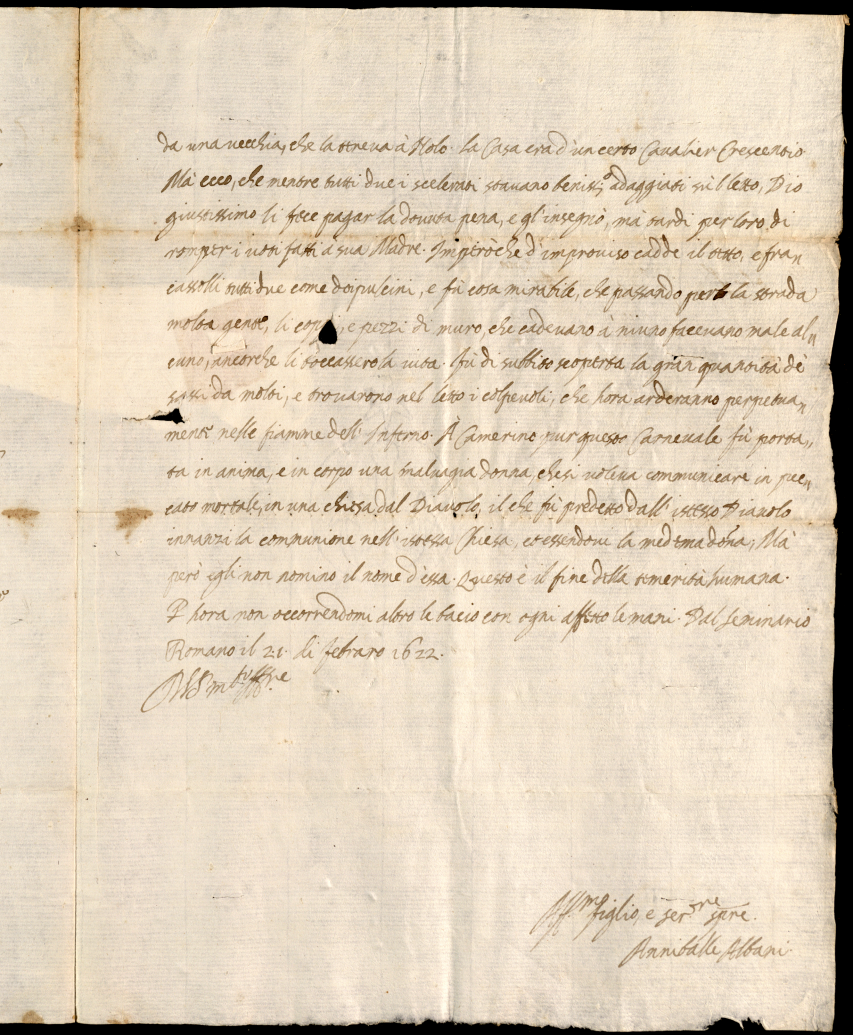 da una vecchia, che la teneva à Nolo. la Casa era d'un certo Cavalier Crescentio
Mà ecco, che mentre tutti due i scelerati stavano beniss.º adaggiati sù'l letto, Dio
giustissimo li fece pagar la douuta pena, e gl'insegnò, ma tardi per loro di
romper i uoti fatti à sua Madre. Imperòche d'improuiso cadde il tetto, e fra„
cassolli tutti due come doi pulcini, e fù cosa mirabile, che passando per la strada
molta gente, li coppi, e pezzi di muro, che cadeuano à niuno faceuano male al„
cuno, ancorche li toccassero la uita. Fù di subbito scoperta la gran quantità de
sassi da molti, e trouarono nel letto i colpeuoli, che hora arderanno perpetua„
mente nelle fiamme dell'Inferno. À Camerino pur questo Carneuale fù porta„
ta in anima, e in corpo una maluagia donna, che si uoleua communicare in pec„
cato mortale, in una chiesa dal Diauolo, il che fù predetto dall'istesso Diauolo
innanzi la communione nell'istessa Chiesa, et essendoui la medema dõna, Mà
però egli non nominò il nome d'essa. Questo è il fine della temerità humana.
P hora non occorrendomi altro le bacio con ogni affetto le mani. Dal Seminario
Romano il 21. di febraro 1622.
Aff.mo figlio, e ser.re
Anniballe Albani